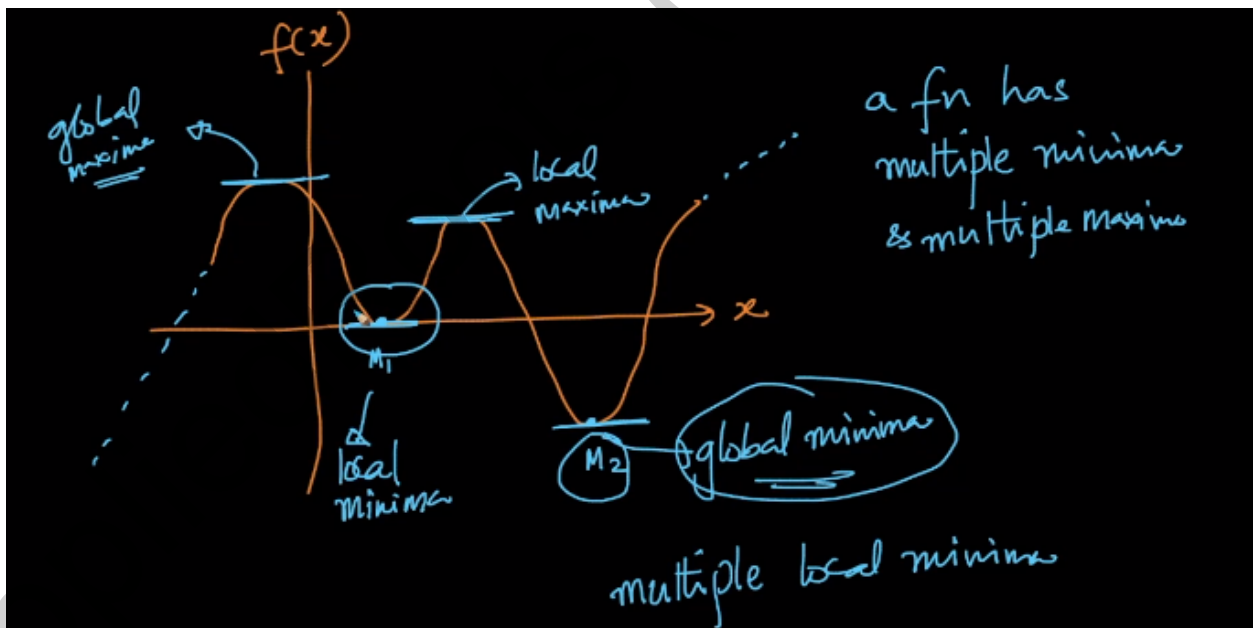 f(x)
global
maxima
local
maxima
a fn has
multiple minima
& multiple maxima
x
M1
local
minima
M2
global minima
multiple local minima